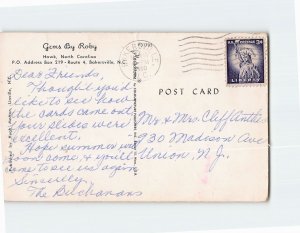 Gems By Roby
Hawk, North Carolina
P. O. Address Box 219 - Route 4, Bakersville, N.C.
Dear Friends,
Thought you'd
like to see how
the cards came out
your slides were
excellent.
Hope summer is
soon come, & you'll
come to see us again
Sincerely,
The Buchanans
POST CARD
U.S. POSTAGE 3¢
LIBERTY
Mr & Mrs. Cliff
930 Madison Ave
Union, N.J.